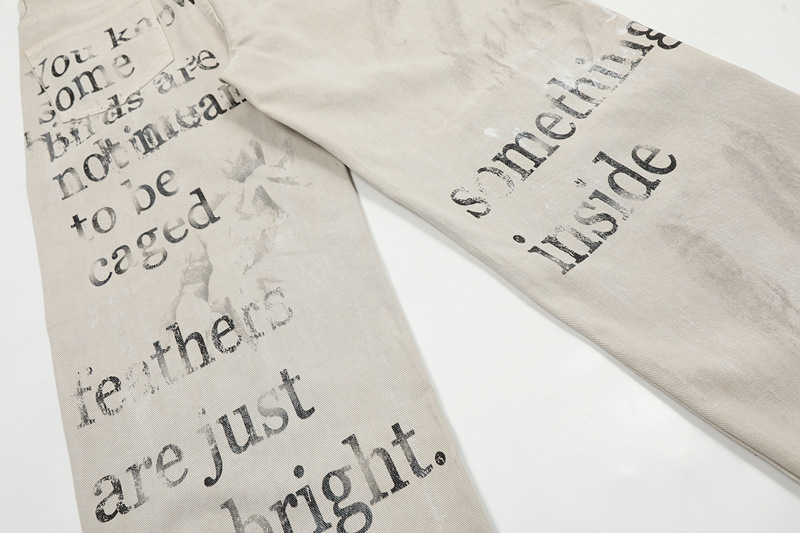 You know
some
birds are
not mean
to be
caged
feathers
are just
bright.
something
inside